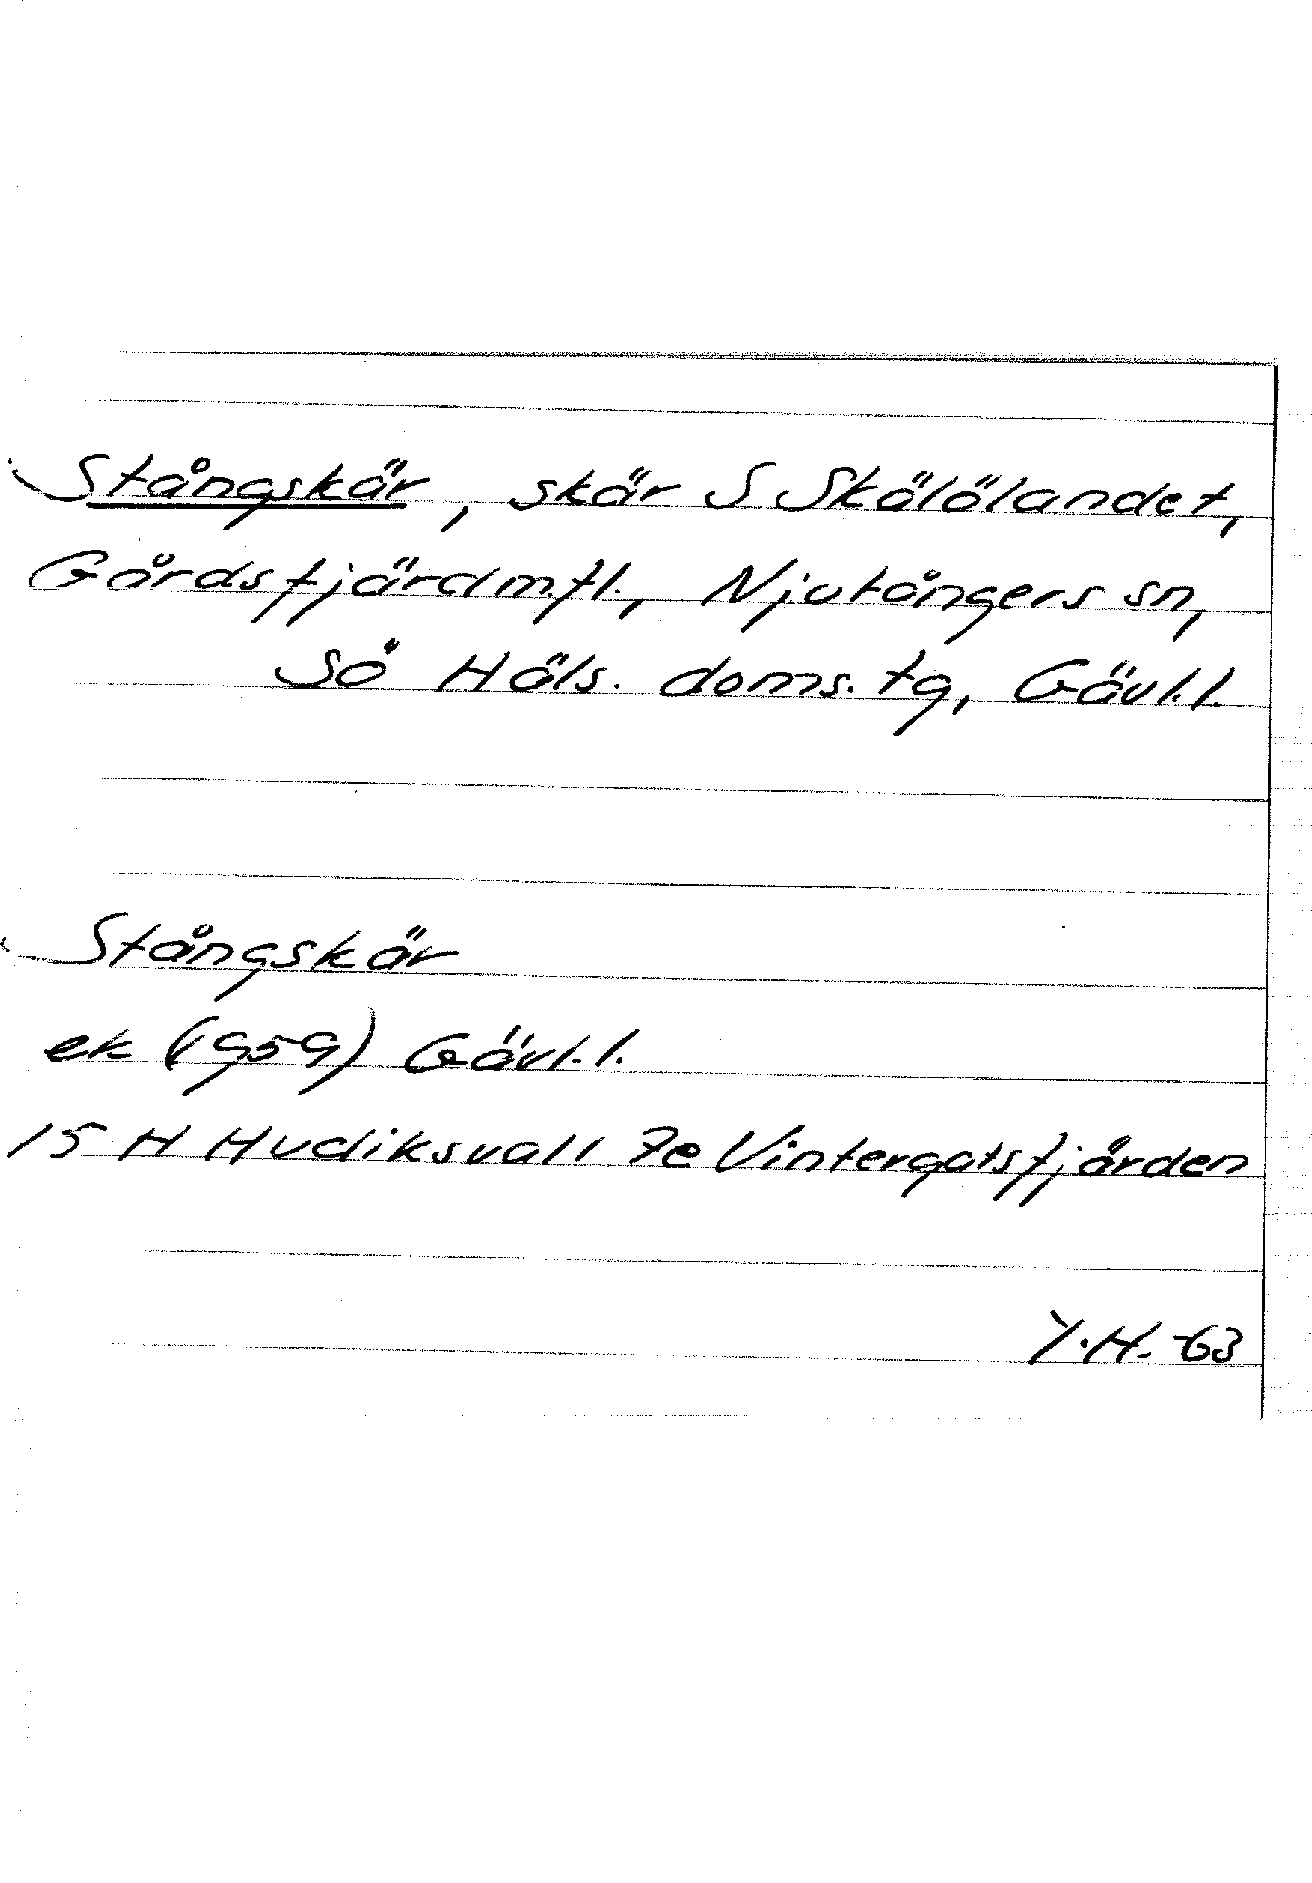 Stångskär, skär S Skälölandet,
Gårdsfjärd m.fl., Njutångers sn,
SÖ Häls. doms. tg, Gävl. l.
Stångskär
ek (1959) Gävl. l.
15 H Hudiksvall 7e Vintergatsfjärden
Y.H. -63